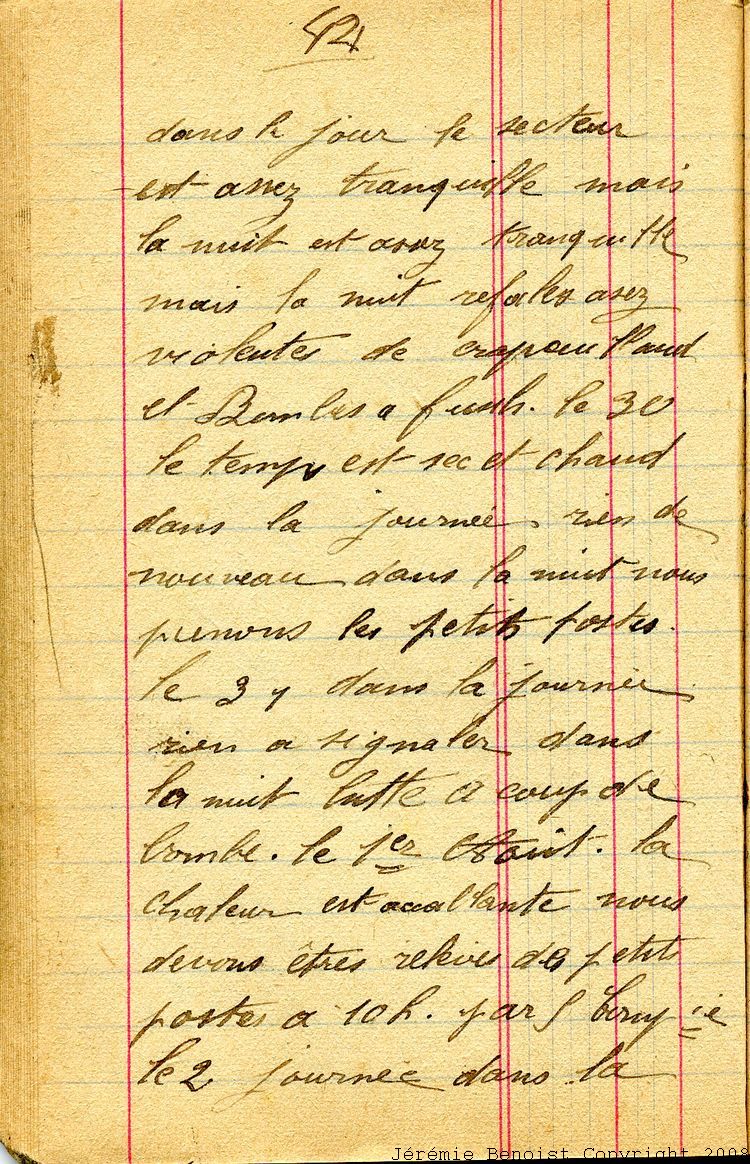 42
dans le jour le secteur
est assez tranquille mais
la nuit est asez tranquille
mais la nuit refales asez
violentes de crapouillaud
et Bombes a fusih. le 30
le temps est sec et chaud
dans la journée. rien de
nouveau dans la nuit nous
prenons les petits postes.
le 31 dans la journée
rien a signaler dans
la nuit lutte a coup de
bombe. le 1er Aout. la
chaleur est accablante nous
devons êtres relevés des petits
postes a 10h. par
le 2 journée dans la
Jérémie Benoist Copyright 2008